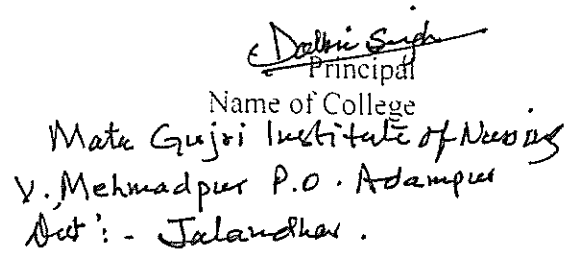 Dalbir Singh
Principal
Name of College
Mata Gujri Institute of Nursing
V. Mehmadpur P.O. Adampur
Distt :- Jalandhar.